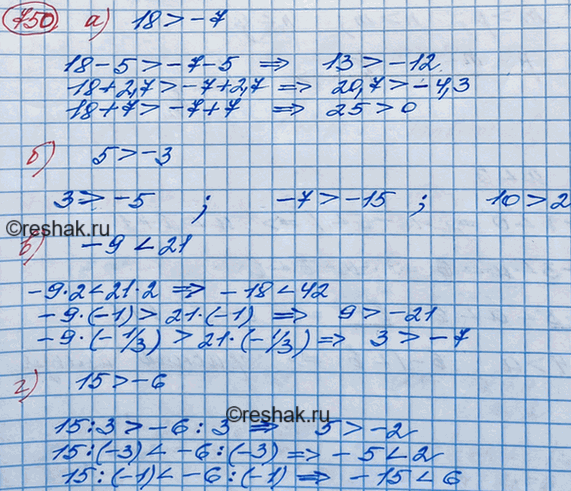 750. а) 18 > -7
18 - 5 > -7 - 5 ⇒ 13 > -12
18 + 2,7 > -7 + 2,7 ⇒ 20,7 > -4,3
18 + 7 > -7 + 7 ⇒ 25 > 0
б) 5 > -3
3 > -5 ; -7 > -15 ; 10 > 2
©reshak.ru
в) -9 < 21
-9·2 < 21·2 ⇒ -18 < 42
-9·(-1) > 21·(-1) ⇒ 9 > -21
-9·(-1/3) > 21·(-1/3) ⇒ 3 > -7
г) 15 > -6
©reshak.ru
15:3 > -6:3 ⇒ 5 > -2
15:(-3) < -6:(-3) ⇒ -5 < 2
15:(-1) < -6:(-1) ⇒ -15 < 6